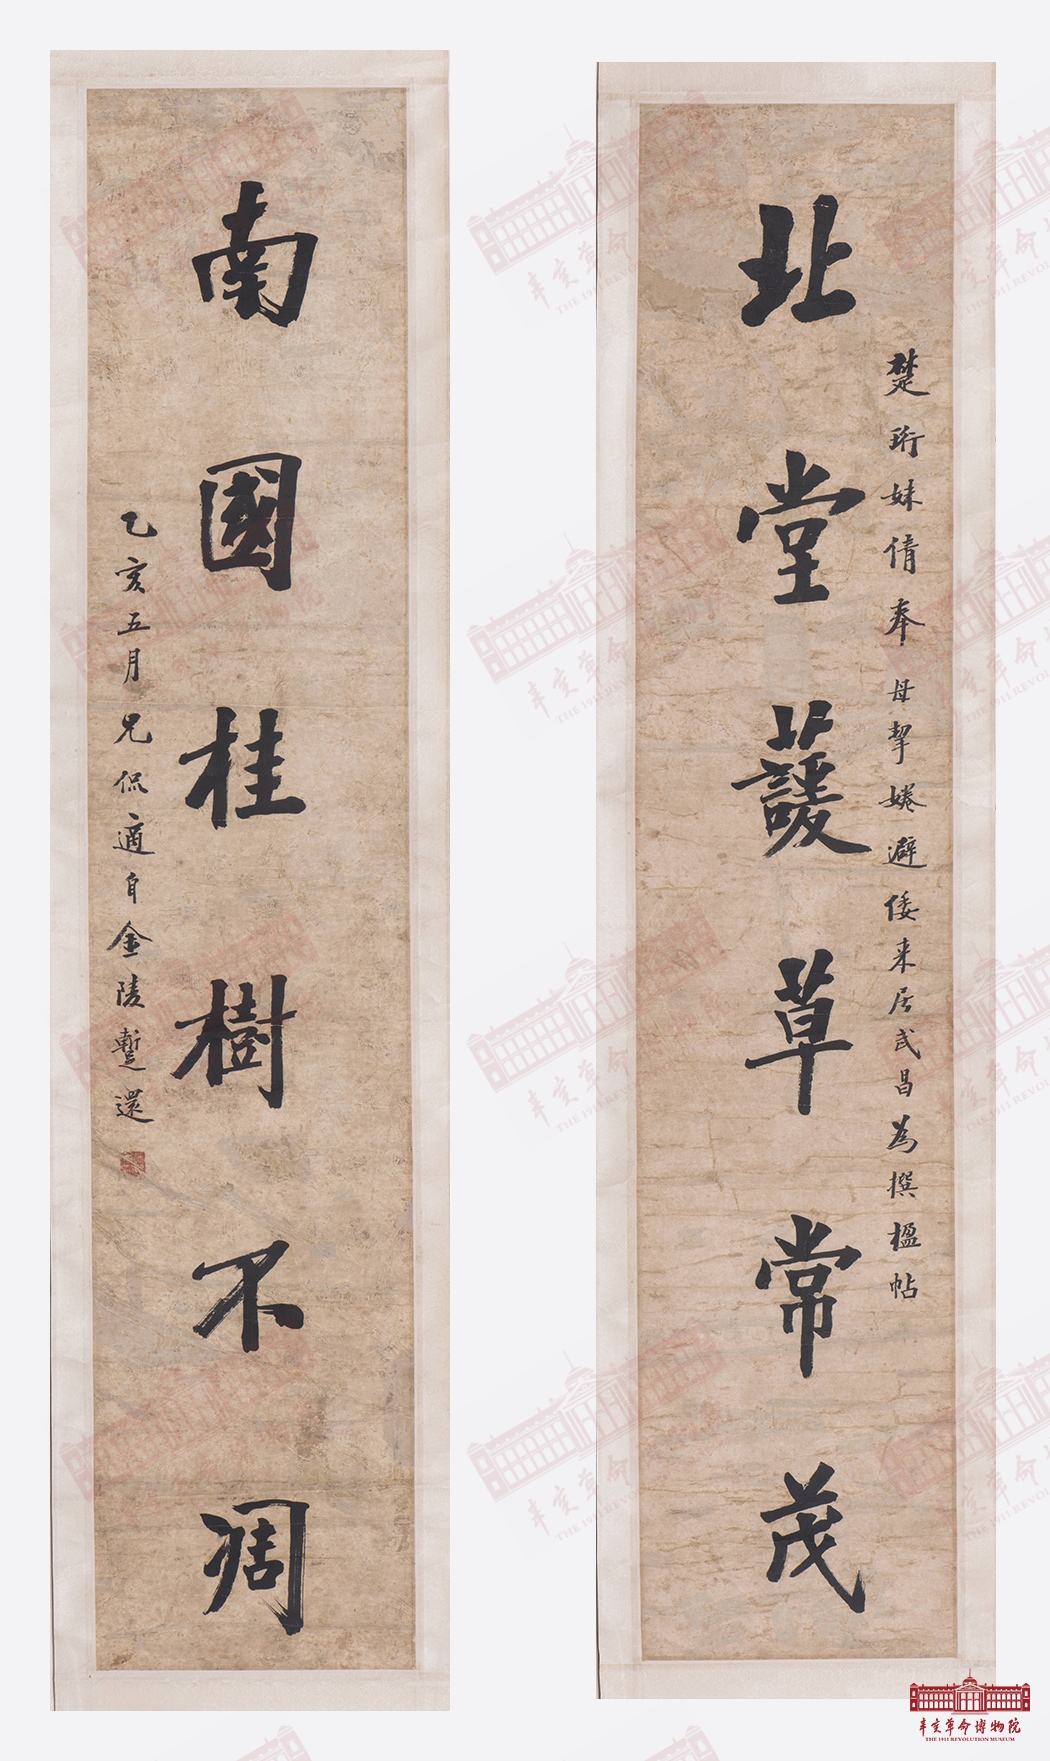 北堂蘐草常茂
楚珩妹倩奉母挈婘避倭来居武昌為撰楹帖
南國桂樹不凋
乙亥五月兄侃適自金陵蹔還
辛亥革命博物院
THE 1911 REVOLUTION MUSEUM